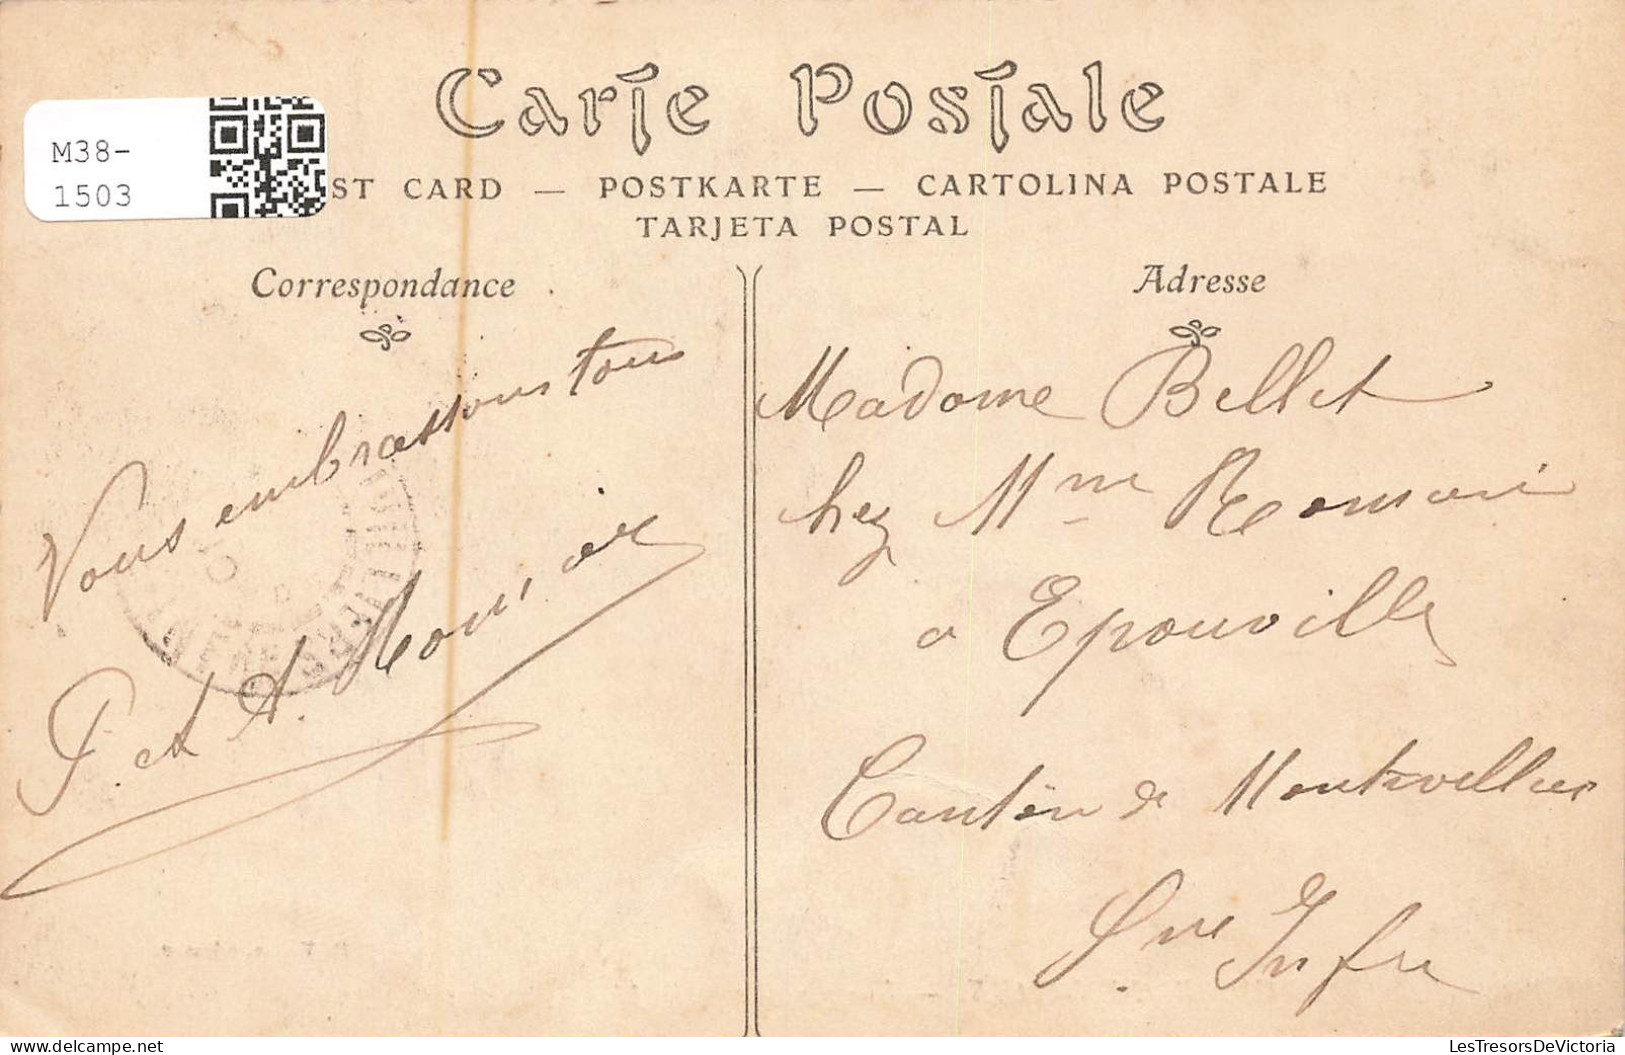 Carte Postale
M38-
1503
ST CARD — POSTKARTE — CARTOLINA POSTALE
TARJETA POSTAL
Correspondance
Adresse
Vous embrassons tous
P. et A.
Madame Bellet
chez Mme
a Epouville
Canton de Montivilliers
Sne Infre
LesTresorsDeVictoria